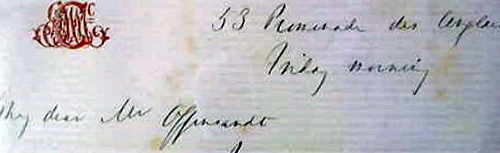 53 Promenade des Anglais
Friday morning
My dear Mr